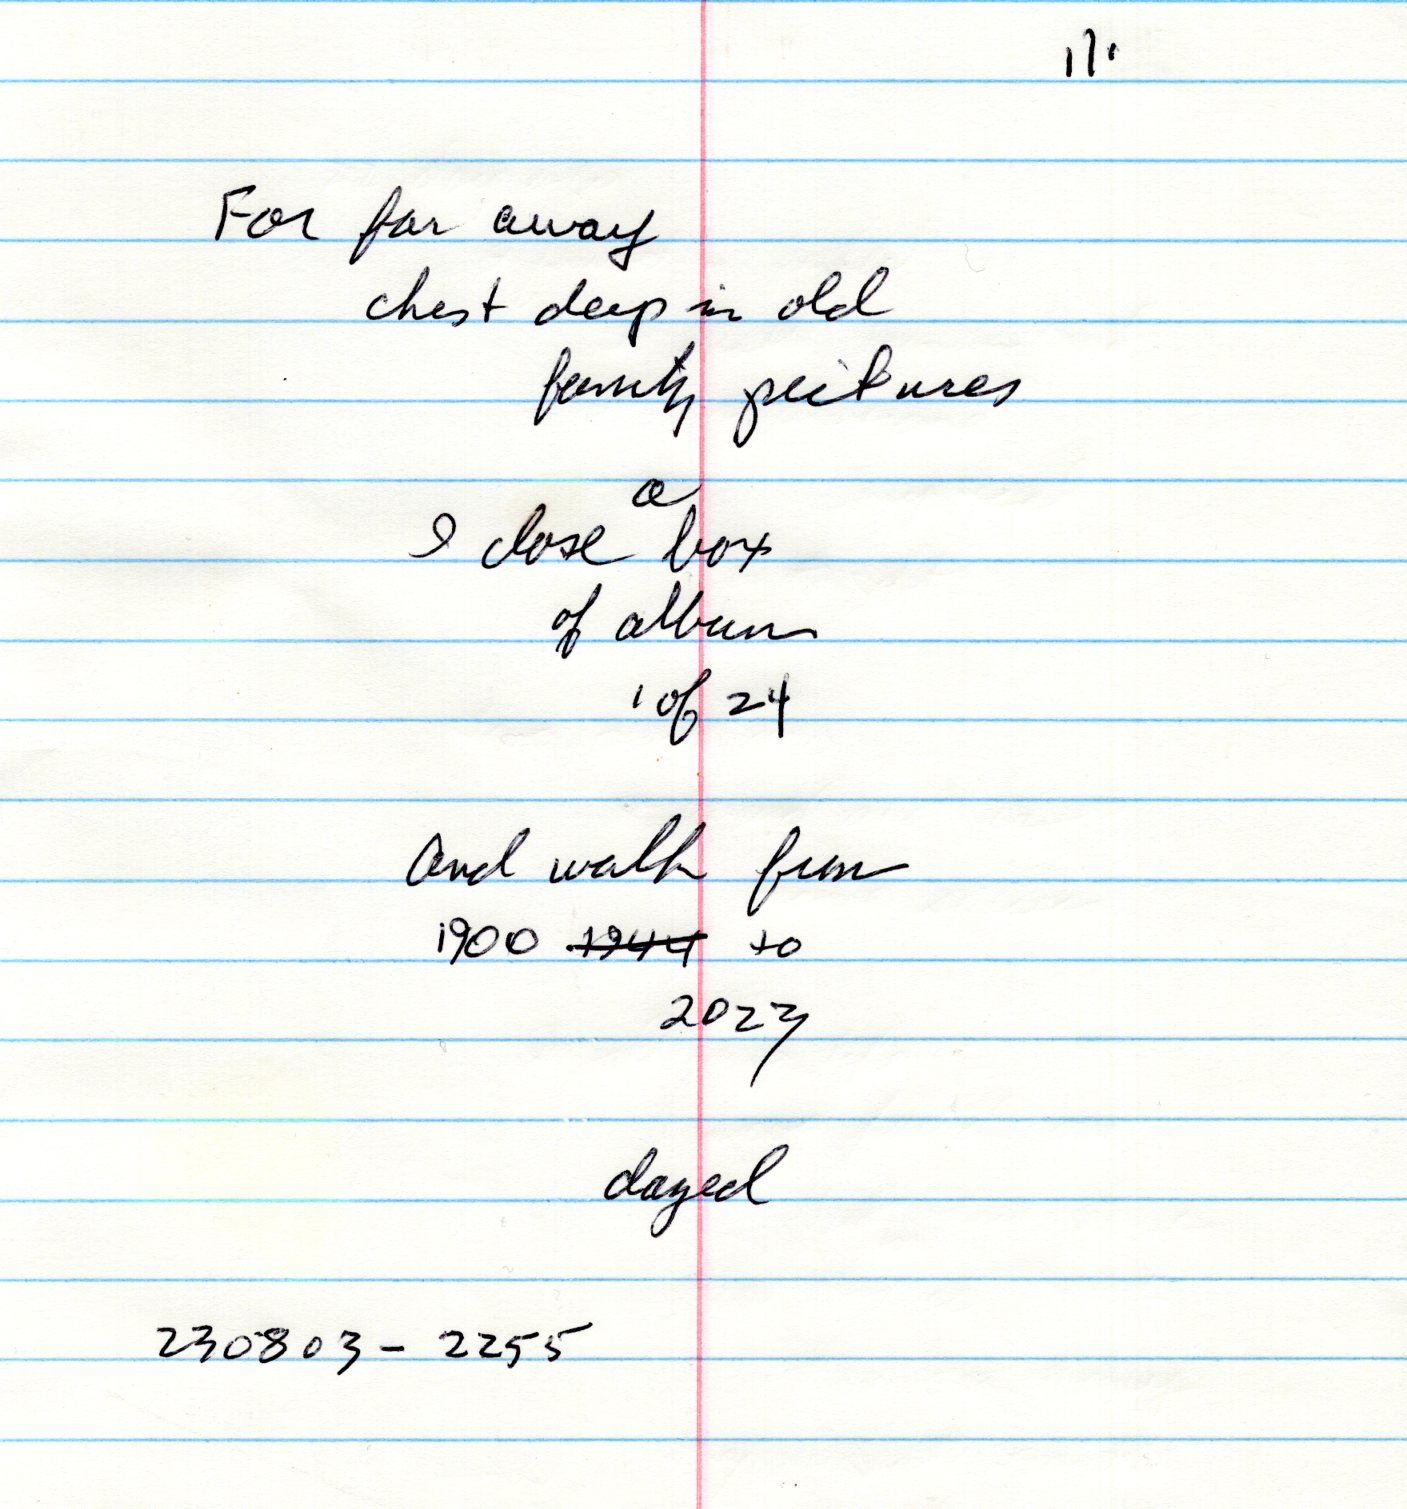 111
For far away
chest deep in old
family pictures
a
I close box
of albums
1 of 24
And walk from
1900 1944 to
2023
dazed
230803 - 2255